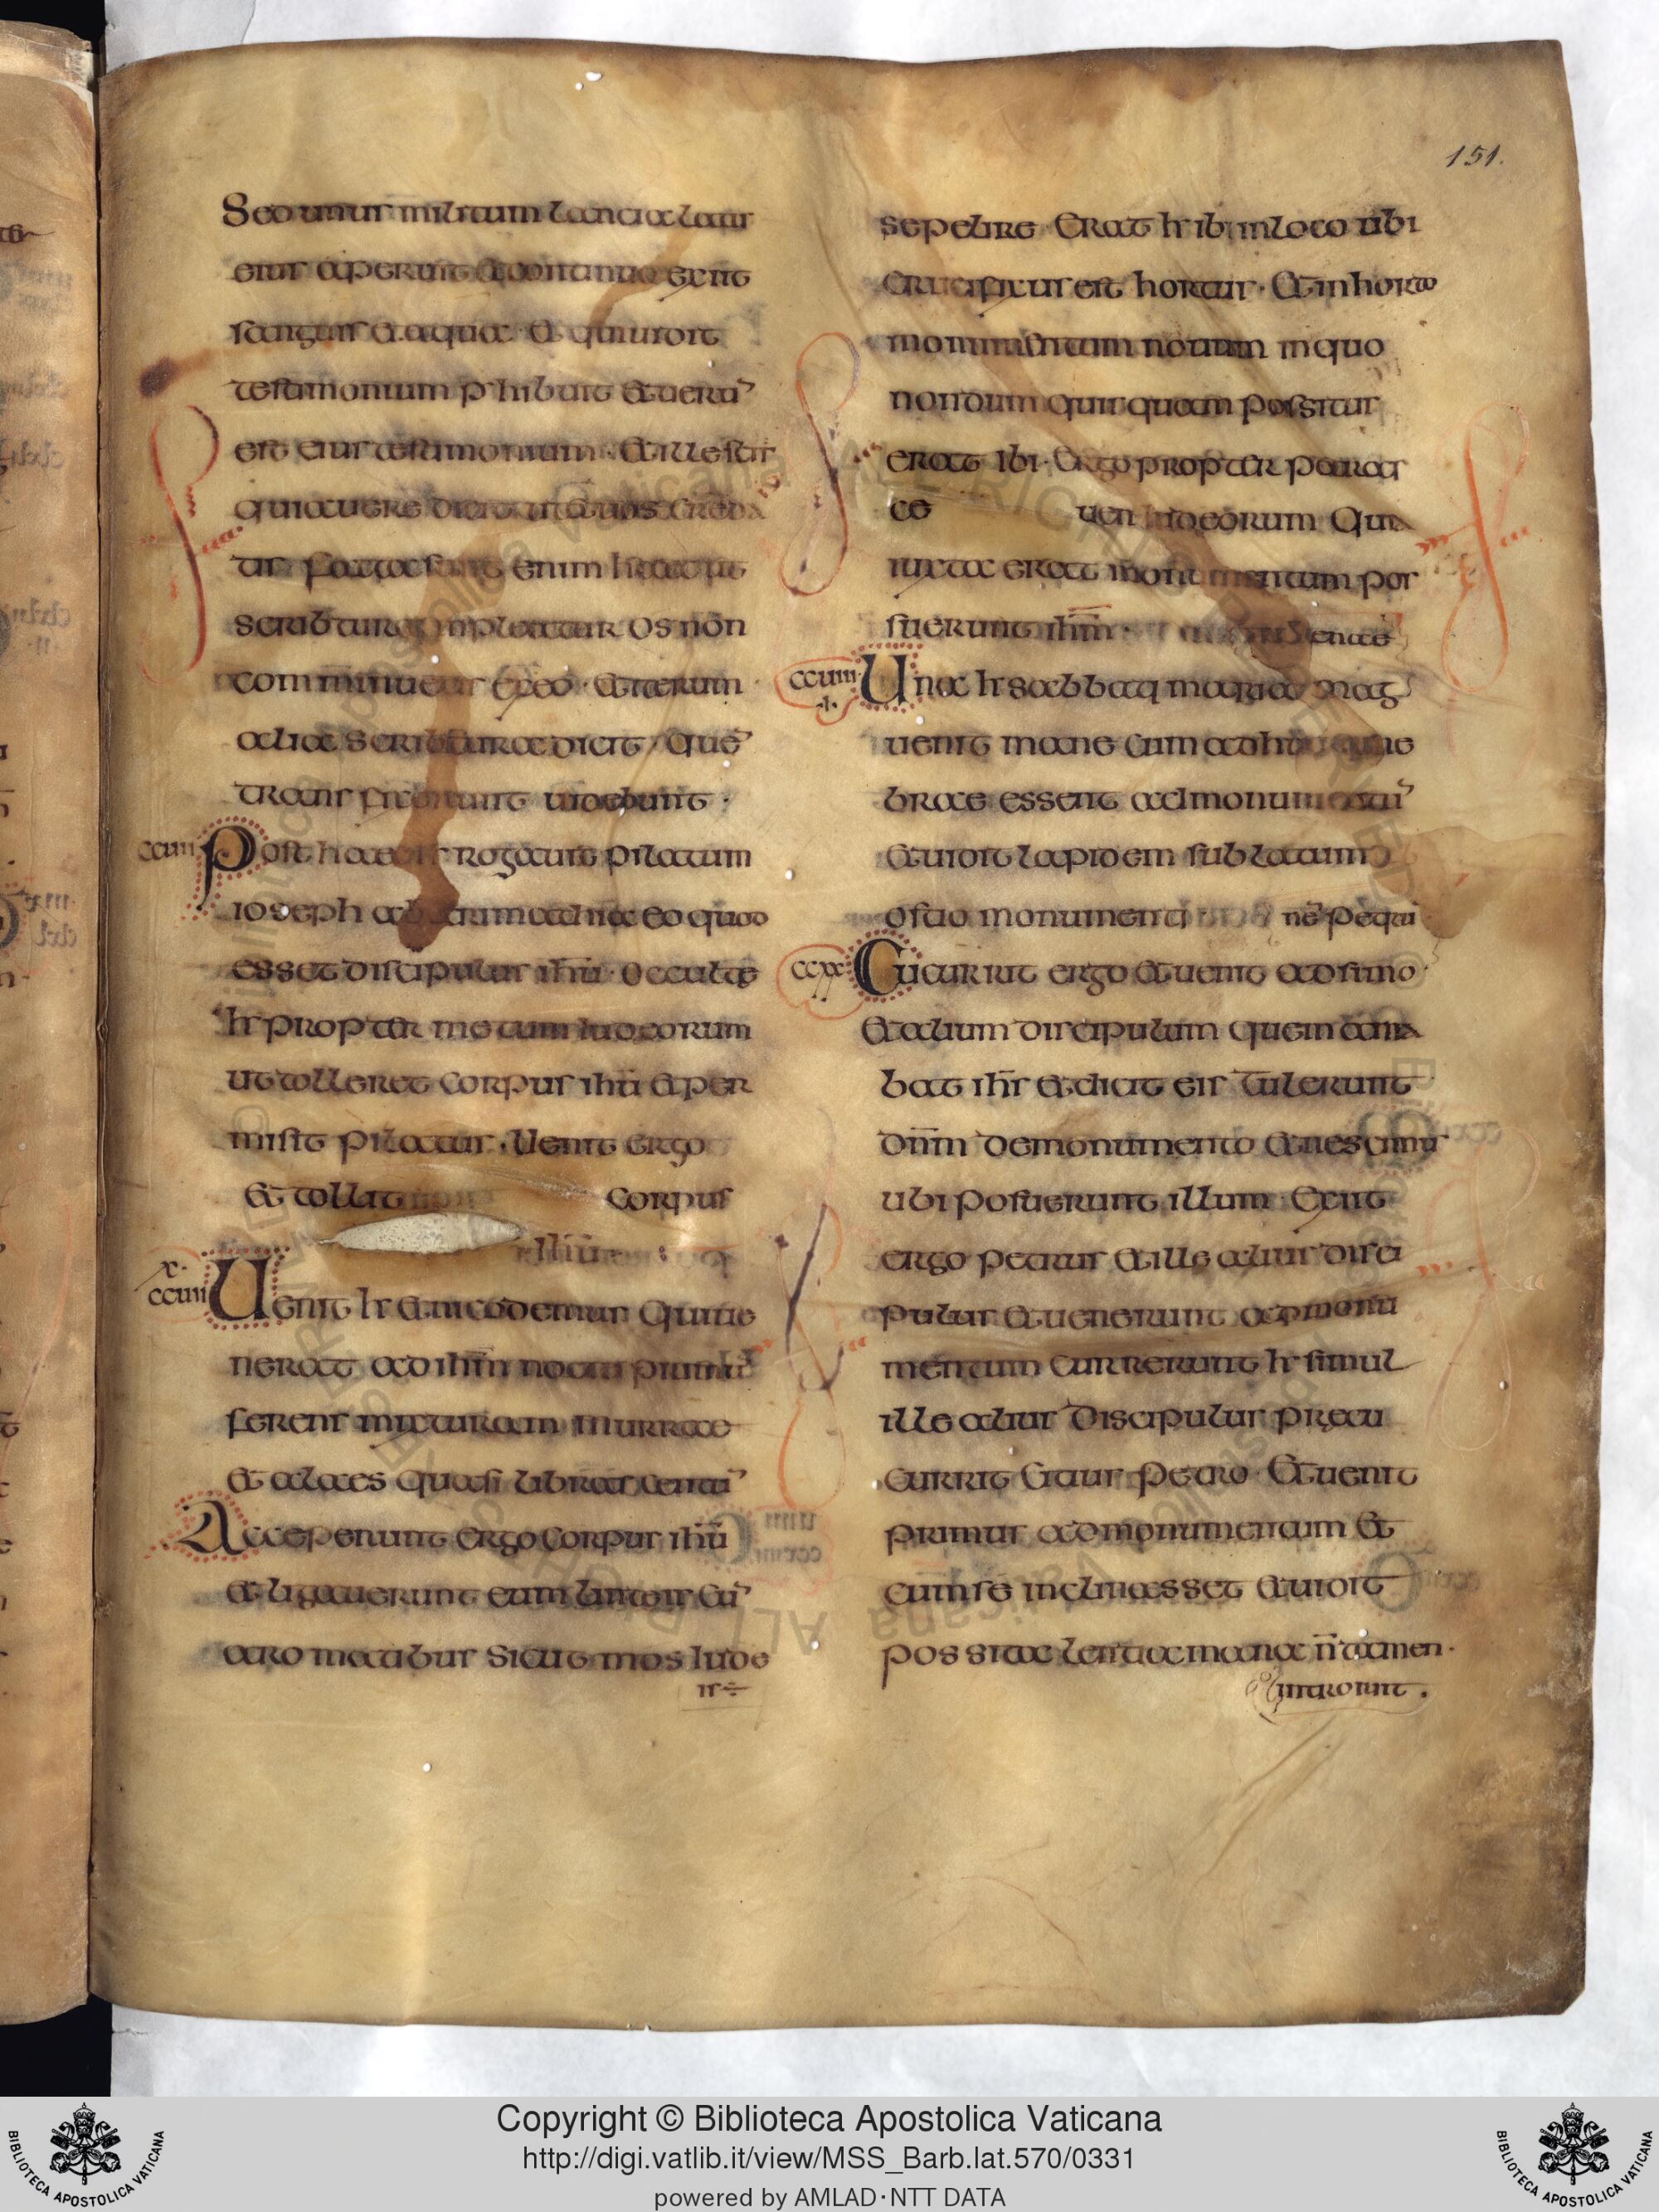 151.
Sed unus militum lanciae latus
eius aperuit et continuo exiit
sanguis et aqua et qui uidit
testimonium phibuit et ueru
est eius testimonium et ille scit
quia uere dicit ut et uos creda
tis facta sunt enim haec ut
scribtura inpleatur os non
comminuetis ex eo et iterum
alia scribtura dicit que
trans fixerunt uidebunt
ccuii Post haec rogauit pilatum
ioseph ab arimathia eo quod
esset discipulus ihu occulte
hr propter metum iudeorum
ut tolleret corpus ihu et per
misit pilatus uenit ergo
et tollit corpus
ihu
x.
ccuiii Uenit hr et nicodemus qui ue
nerat ad ihm nocte primu
ferens mixturam murrae
et aloes quasi libras centu
Acceperunt ergo corpus ihu
et ligauerunt eum linteis cu
aromatibus sicut mos iude
is
sepelire erat hr ibi in loco ubi
crucifixus est hortus et in horto
monumentum nouum in quo
nondum quisquam possitus
erat ibi ergo propter paras
ce uen iudeorum quia
iuxta erat monumentum pos
suerunt ihm
ccuiiii
.i. Una hr sabbati maria mag
uenit mane cum adhuc tene
brae essent ad monumentu
et uidit lapidem sublatum
ostio monumenti
ccx Cucurrit ergo et uenit ad simo
et alium discipulum quem ama
bat ihs et dicit eis tulerunt
dnm de monumento et nescimus
ubi possuerunt illum exiit
ergo petrus et ille alius disci
pulus et uenerunt ad monu
mentum currerunt hr simul
ille alius discipulus praecu
currit citius petro et uenit
primus ad monumentum et
cum se inclinasset et uidit
possita lentiamana n tamen
introiuit.
Copyright © Biblioteca Apostolica Vaticana
http://digi.vatlib.it/view/MSS_Barb.lat.570/0331
powered by AMLAD·NTT DATA
BIBLIOTECA APOSTOLICA VATICANA
BIBLIOTECA APOSTOLICA VATICANA